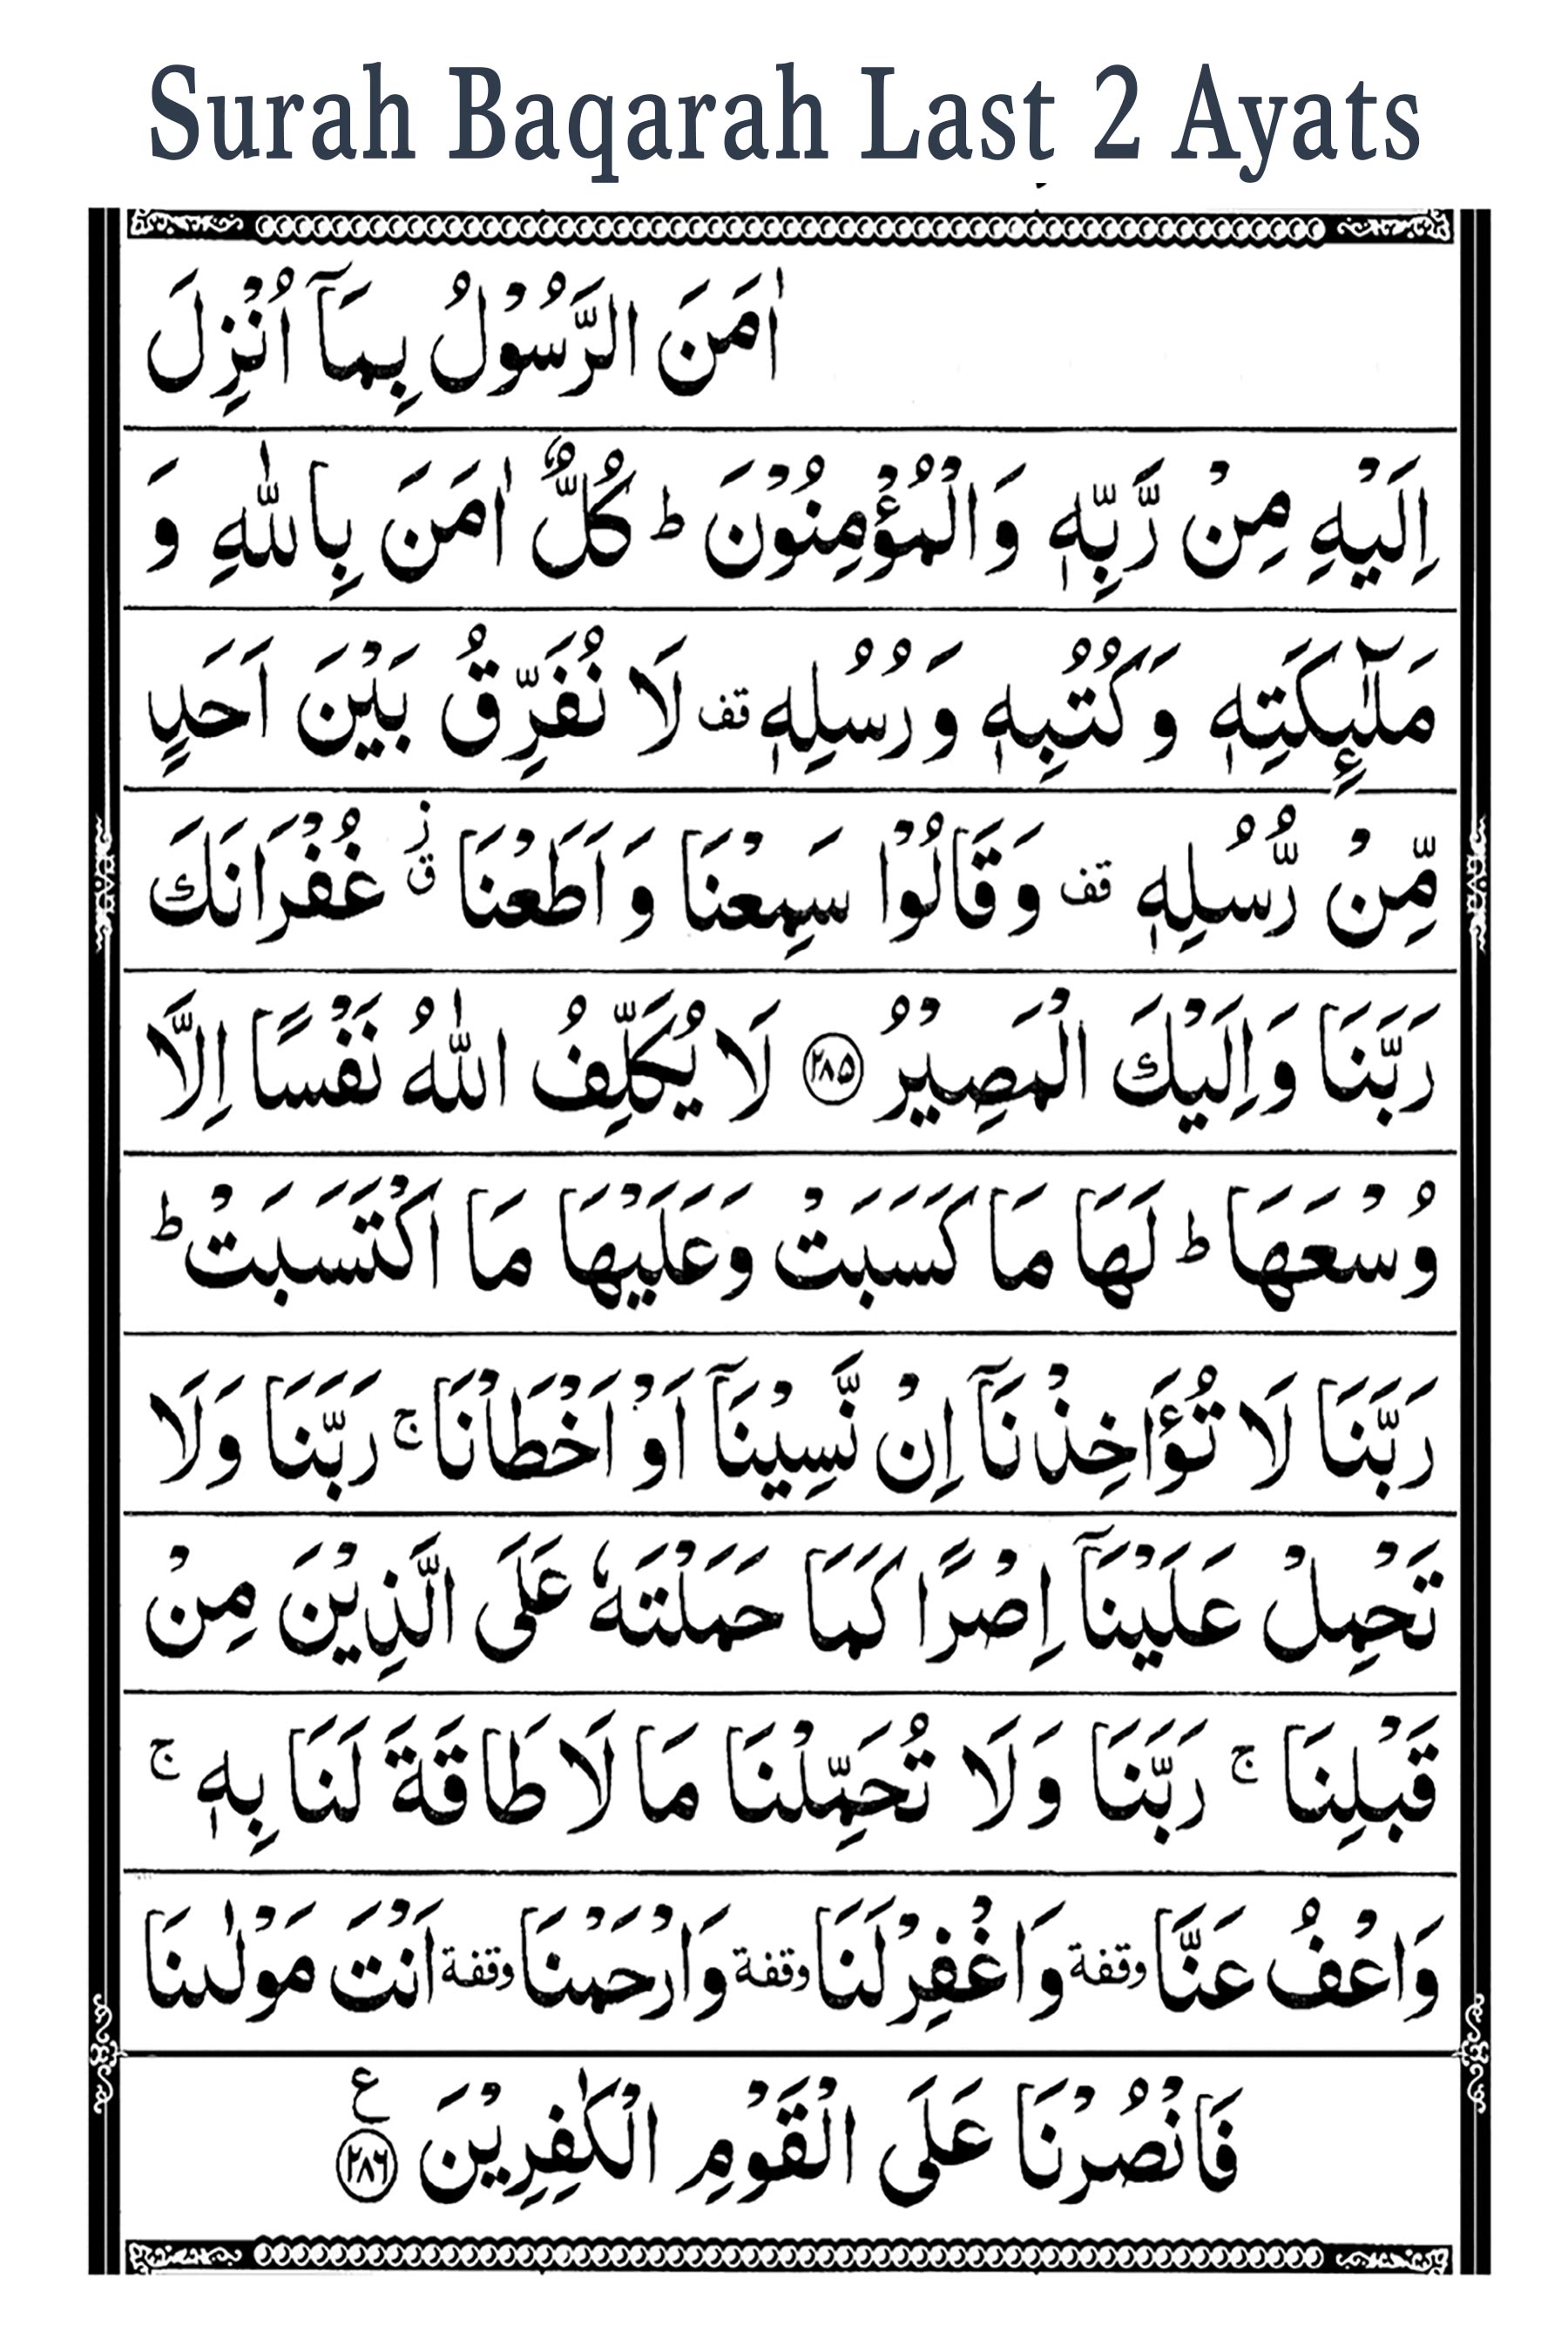 Surah Baqarah Last 2 Ayats
اٰمَنَ الرَّسُوْلُ بِمَاۤ اُنْزِلَ
اِلَيْهِ مِنْ رَّبِّهٖ وَالْمُؤْمِنُوْنَ ؕ كُلٌّ اٰمَنَ بِاللّٰهِ وَ
مَلٰٓئِكَتِهٖ وَكُتُبِهٖ وَرُسُلِهٖ قف لَا نُفَرِّقُ بَيْنَ اَحَدٍ
مِّنْ رُّسُلِهٖ قف وَقَالُوْا سَمِعْنَا وَاَطَعْنَا ز ق غُفْرَانَكَ
رَبَّنَا وَاِلَيْكَ الْمَصِيْرُ ﴿۲۸۵﴾ لَا يُكَلِّفُ اللّٰهُ نَفْسًا اِلَّا
وُسْعَهَا ؕ لَهَا مَا كَسَبَتْ وَعَلَيْهَا مَا اكْتَسَبَتْ ؕ
رَبَّنَا لَا تُؤَاخِذْنَاۤ اِنْ نَّسِيْنَاۤ اَوْ اَخْطَاْنَا ۚ رَبَّنَا وَلَا
تَحْمِلْ عَلَيْنَاۤ اِصْرًا كَمَا حَمَلْتَهٗ عَلَى الَّذِيْنَ مِنْ
قَبْلِنَا ۚ رَبَّنَا وَلَا تُحَمِّلْنَا مَا لَا طَاقَةَ لَنَا بِهٖ ۚ
وَاعْفُ عَنَّا وقفة وَاغْفِرْ لَنَا وقفة وَارْحَمْنَا وقفة اَنْتَ مَوْلٰىنَا
فَانْصُرْنَا عَلَى الْقَوْمِ الْكٰفِرِيْنَ ﴿۲۸۶﴾ ع